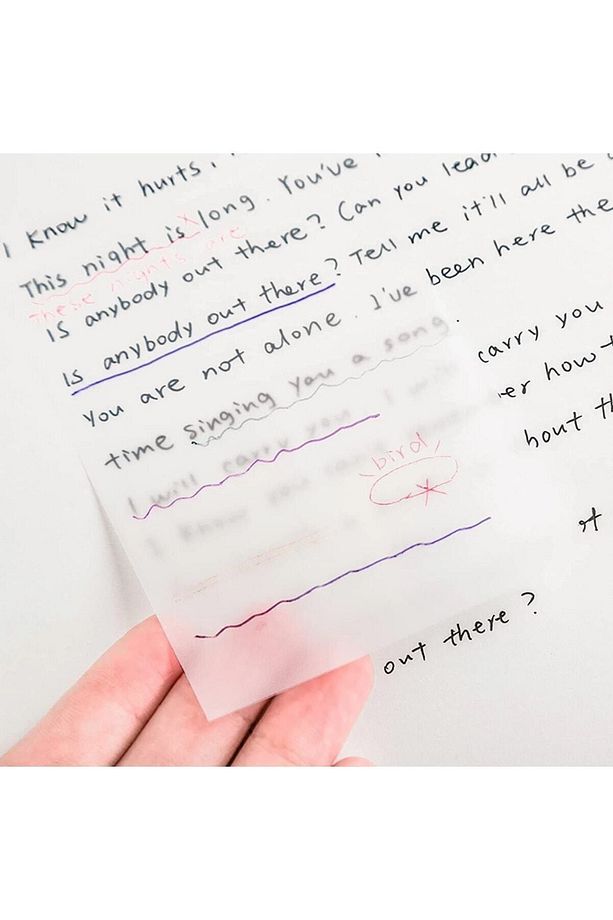 I know it hurts,
This night is long. You've
these nights are
is anybody out there? Can you lead
is anybody out there? Tell me it'll all be
You are not alone. I've been here the
time singing you a song.
I will carry you I will carry you
I know you er how t
bird
bout th
out there?